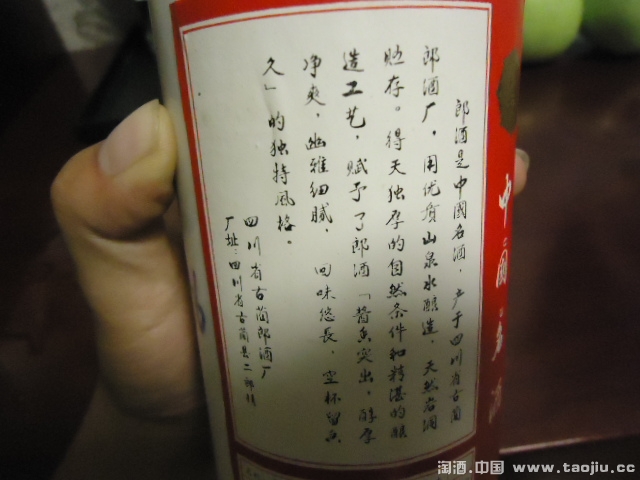 中國名酒
郎酒是中國名酒，产于四川省古蔺
郎酒厂，用优质山泉水酿造，天然岩洞
贮存。得天独厚的自然条件和精湛的酿
造工艺，赋予了郎酒「酱香突出，醇厚
净爽，幽雅细腻，回味悠長，空杯留香
久」的独特风格。
四川省古蔺郎酒厂
厂址：四川省古蔺县二郎镇
淘酒.中国 www.taojiu.cc